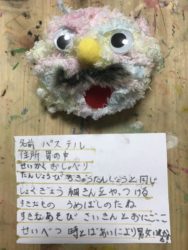 名前 パステル
住所 買の中
せいかく おしゃべり
たんじょうび ちきゅうたんじょうと同じ
しょくぎょう 細きんをやっつける
すきなもの うめぼしのたね
すきなあそび さいきんとおにごこ
せいべつ 時とばあいにより男女に